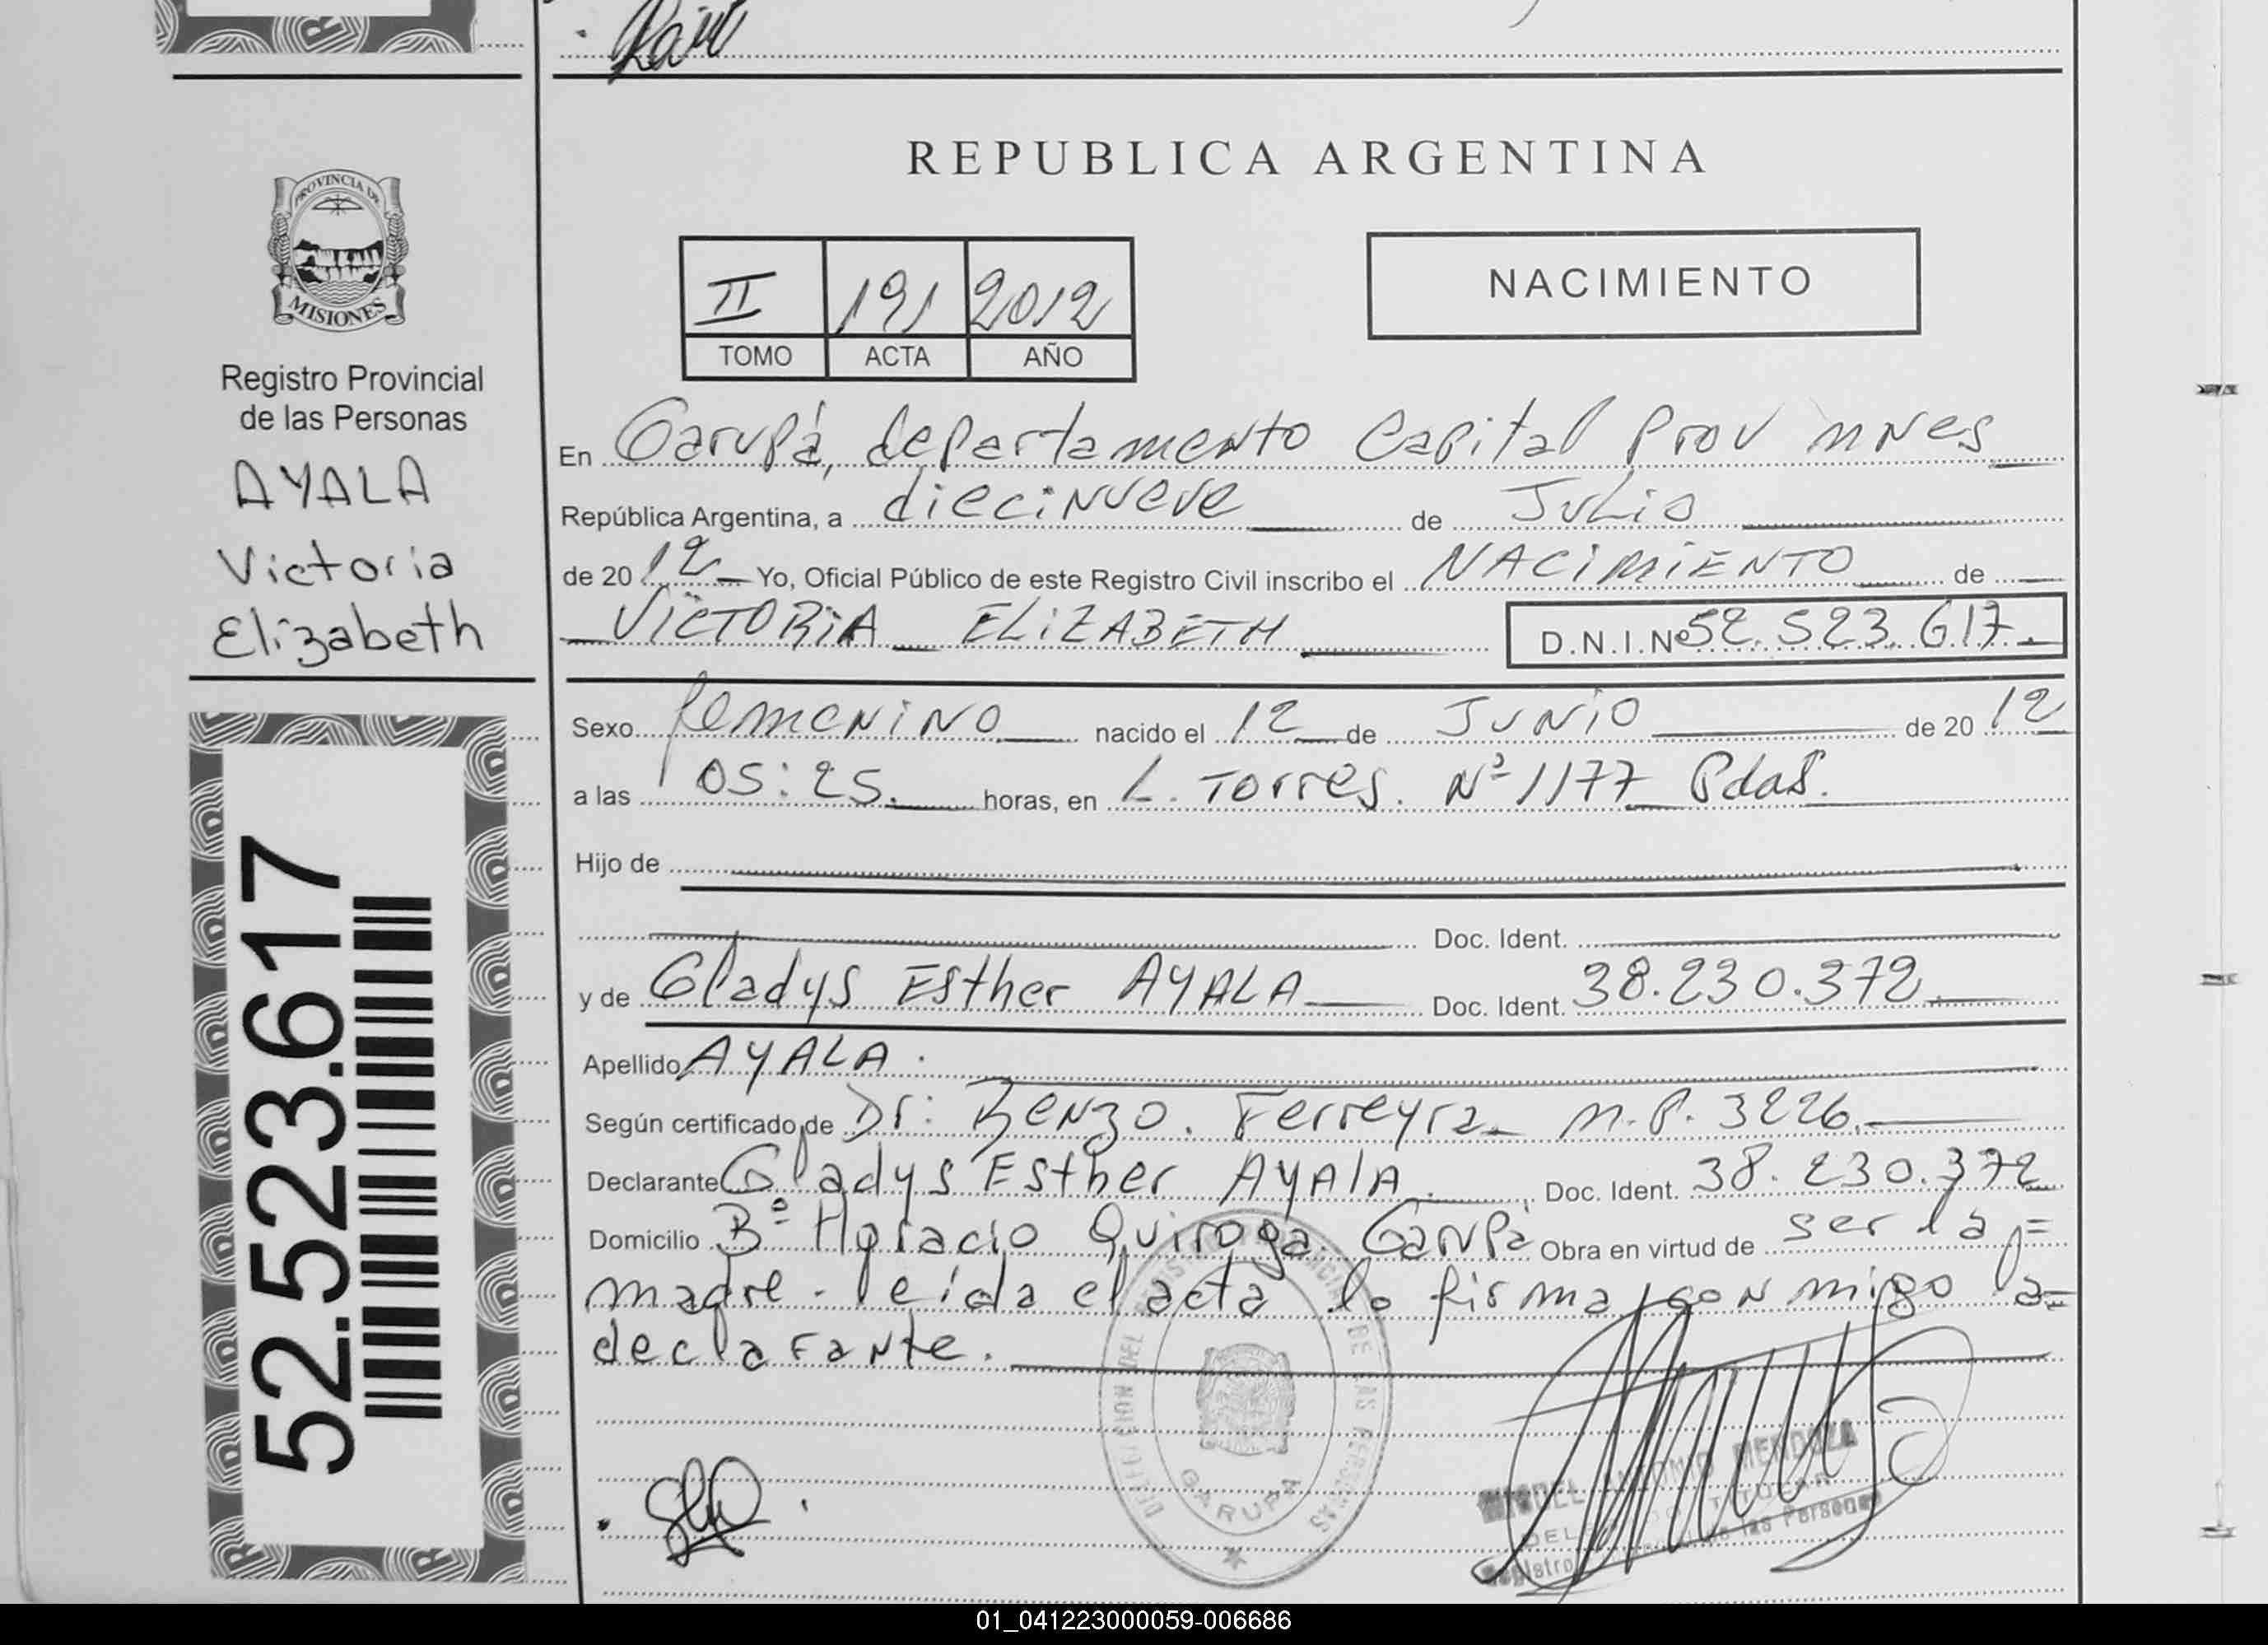 REPUBLICA ARGENTINA
PROVINCIA DE
MISIONES
Registro Provincial
de las Personas
AYALA
Victoria
Elizabeth
52.523.617
II 191 2012
TOMO ACTA AÑO
NACIMIENTO
En Garupá, departamento Capital Prov mnes
República Argentina, a diecinueve de Julio
de 2012 Yo, Oficial Público de este Registro Civil inscribo el NACIMIENTO de
VICTORIA ELIZABETH D.N.I.Nº 52.523.617.
Sexo femenino nacido el 12 de JUNIO de 2012
a las 05:25. horas, en L. Torres. Nº 1177 Pdas.
Hijo de
Doc. Ident.
y de Gladys Esther AYALA Doc. Ident. 38.230.372
Apellido AYALA.
Según certificado de Dr: Renzo. Ferreyra M.P. 3226.
Declarante Gladys Esther AyAlA. Doc. Ident. 38.230.372
Domicilio Bº Horacio Quiroga. Garupá Obra en virtud de ser la
madre. leida el acta lo firma conmigo la=
declarante.
DE LAS PERSONAS
GARUPA
ANTONIO MENDOZA
TITULAR
de las Personas
01_041223000059-006686